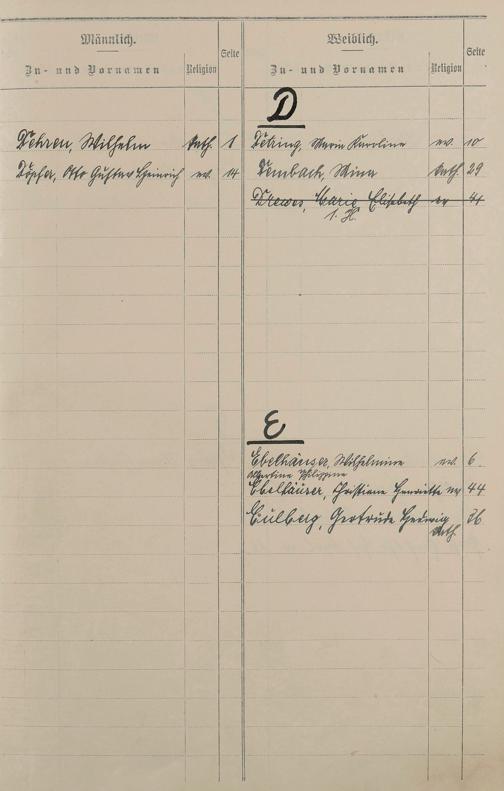 Männlich.
Zu- und Vornamen
Religion
Seite
Weiblich.
Zu- und Vornamen
Religion
Seite
D
Dehren, Wilhelm kath. 1
Döpfer, Otto Gustav Heinrich ev. 14
Detring, Maria Karoline ev. 10
Dembach, Mina kath. 29
Drewes, Marie Elisabeth ev 41
s. H.
E
Ebelhäuser, Wilhelmine ev. 6.
Philippine
Ebelhäuser, Christiane Henriette ev 44
Eulberg, Gertrude Hedwig 36
kath.